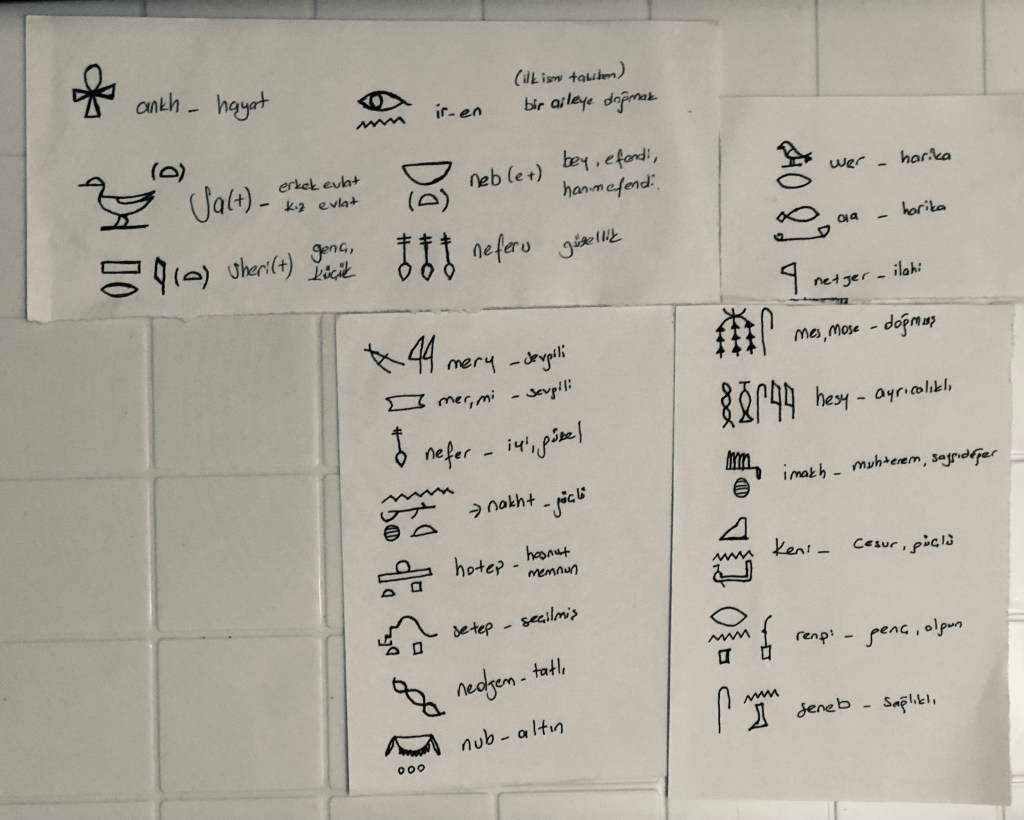 ankh - hayat
ir-en
(ilk ismi takiben)
bir aileye doğmak
Sa(t) -
erkek evlat
kız evlat
neb(et)
bey, efendi,
hanımefendi.
sheri(t)
genç,
küçük
neferu güzellik
wer - harika
aa - harika
netjer - ilahi
mery - sevgili
mer, mi - sevgili
nefer - iyi, güzel
→ nakht - güçlü
hotep - hoşnut
memnun
setep - seçilmiş
nedjem - tatlı
nub - altın
mes, mose - doğmuş
hesy - ayrıcalıklı
imakh - muhterem, saygıdeğer
keni - cesur, güçlü
renpi - genç, olgun
seneb - sağlıklı